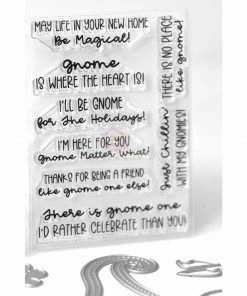 MAY LIFE IN YOUR NEW HOME
Be Magical!
gnome
IS WHERE THE HEART IS!
I'LL BE GNOME
for The Holidays!
I'M HERE FOR YOU
gnome Matter What!
THANKS FOR BEING A FRIEND
like gnome one else!
There is gnome one
I'D RATHER CELEBRATE THAN YOU!
THERE IS NO PLACE
like gnome!
Just Chillin'
WITH MY GNOMIES!